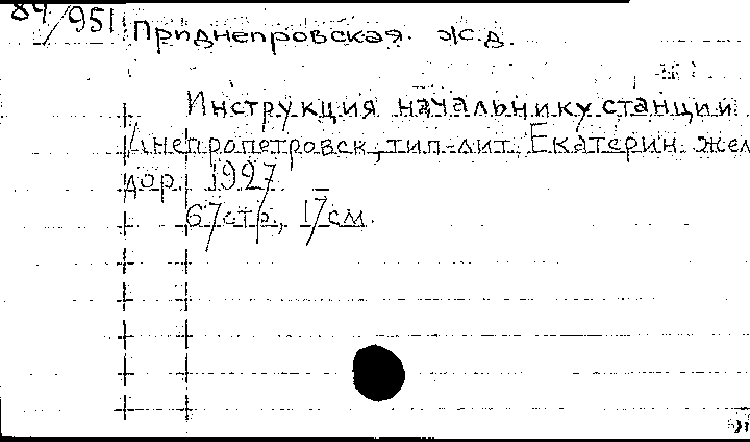 84/951 Приднепровская ж.д.
Инструкция начальнику станции
Днепропетровск, тип-лит. Екатерин. жел
дор. 1927
67 стр., 17 см.